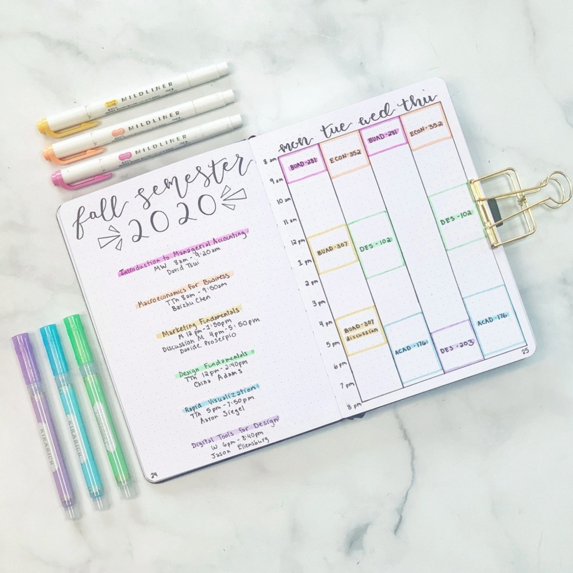 MILDLINER
MILDLINER
MILDLINER
fall semester
2020
Introduction to Managerial Accounting
MW 8am - 9:20am
David Tsui
Macroeconomics For Business
TTh 8am - 9:50am
Baizhu Chen
Marketing Fundamentals
M 12pm - 1:50pm
Discussion M 4pm - 5:50pm
Davide Proserpio
Design Fundamentals
TTh 12pm - 2:40pm
China Adams
Rapid Visualization
TTh 5pm - 7:50pm
Aaron Siegel
Digital Tools for Design
W 6pm - 8:40pm
Jason Ellenburg
24
mon tue wed thu
8 am
9 am
10 am
11 am
12 pm
1 pm
2 pm
3 pm
4 pm
5 pm
6 pm
7 pm
8 pm
BUAD-281
ECON-352
BUAD-281
ECON-352
BUAD-307
DES-102
DES-102
BUAD-307
discussion
ACAD-176
DES-203
ACAD-176
25